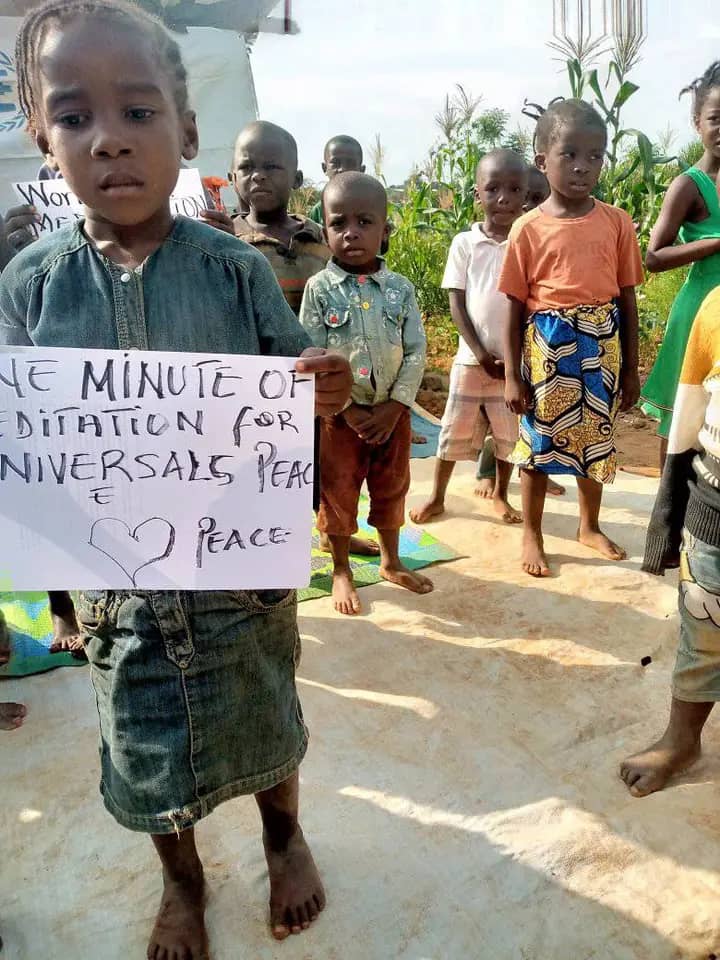 Wor
NE MINUTE OF
EDITATION FOR
NIVERSALS PEAC
E
PEACE